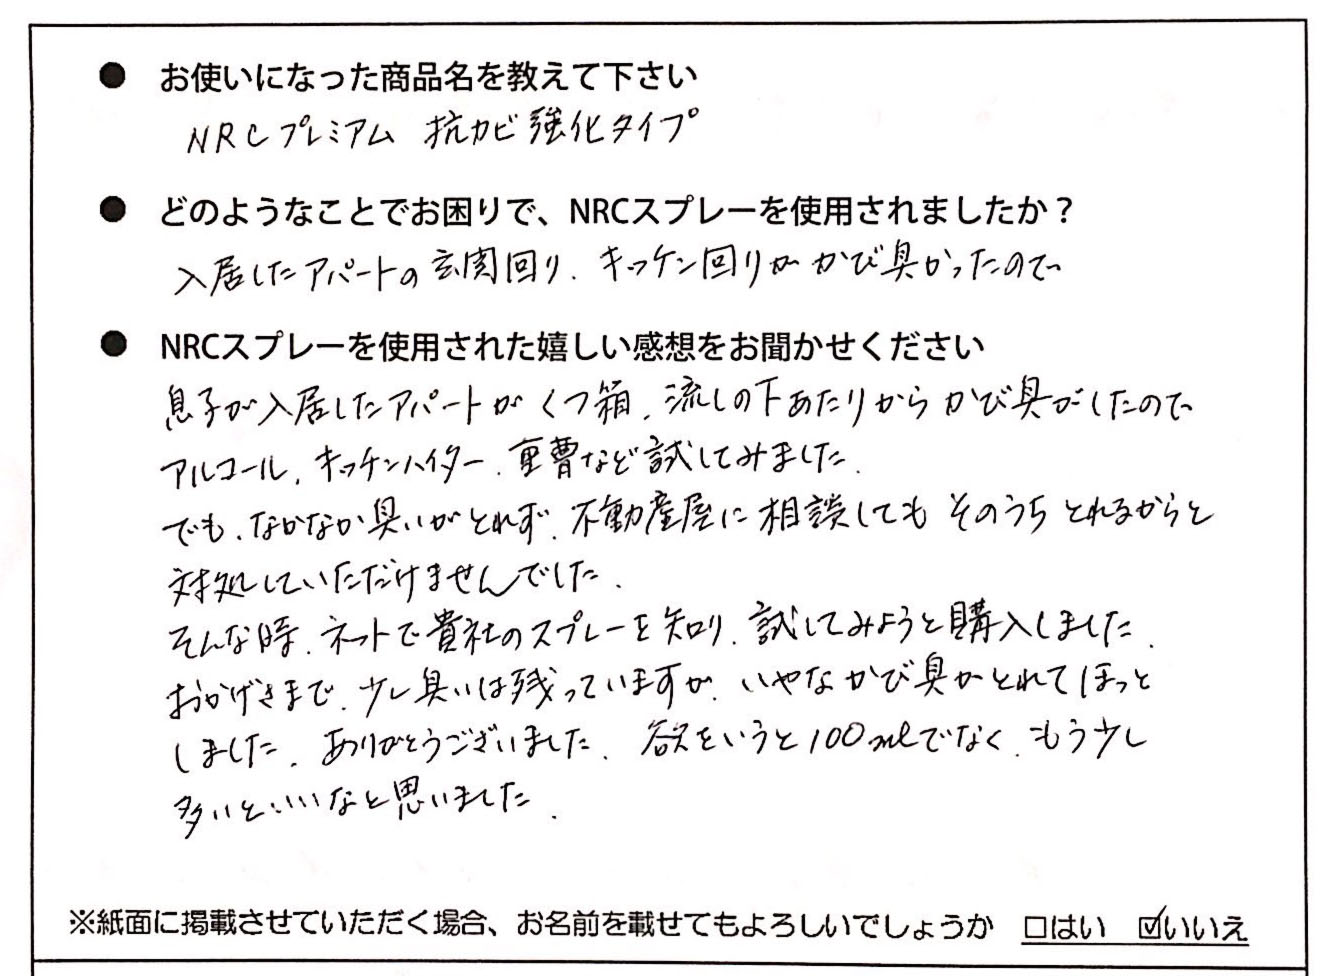 ● お使いになった商品名を教えて下さい
NRCプレミアム 抗カビ強化タイプ
● どのようなことでお困りで、NRCスプレーを使用されましたか？
入居したアパートの玄関回り、キッチン回りがかび臭かったので
● NRCスプレーを使用された嬉しい感想をお聞かせください
息子が入居したアパートがくつ箱、流しの下あたりからかび臭がしたので
アルコール、キッチンハイター、重曹など試してみました。
でも、なかなか臭いがとれず、不動産屋に相談してもそのうちとれるからと
対処していただけませんでした。
そんな時、ネットで貴社のスプレーを知り、試してみようと購入しました。
おかげさまで、少し臭いは残っていますが、いやなかび臭がとれてほっと
しました。ありがとうございました。欲をいうと100mlでなく、もう少し
多いといいなと思いました。
※紙面に掲載させていただく場合、お名前を載せてもよろしいでしょうか □はい ☑いいえ